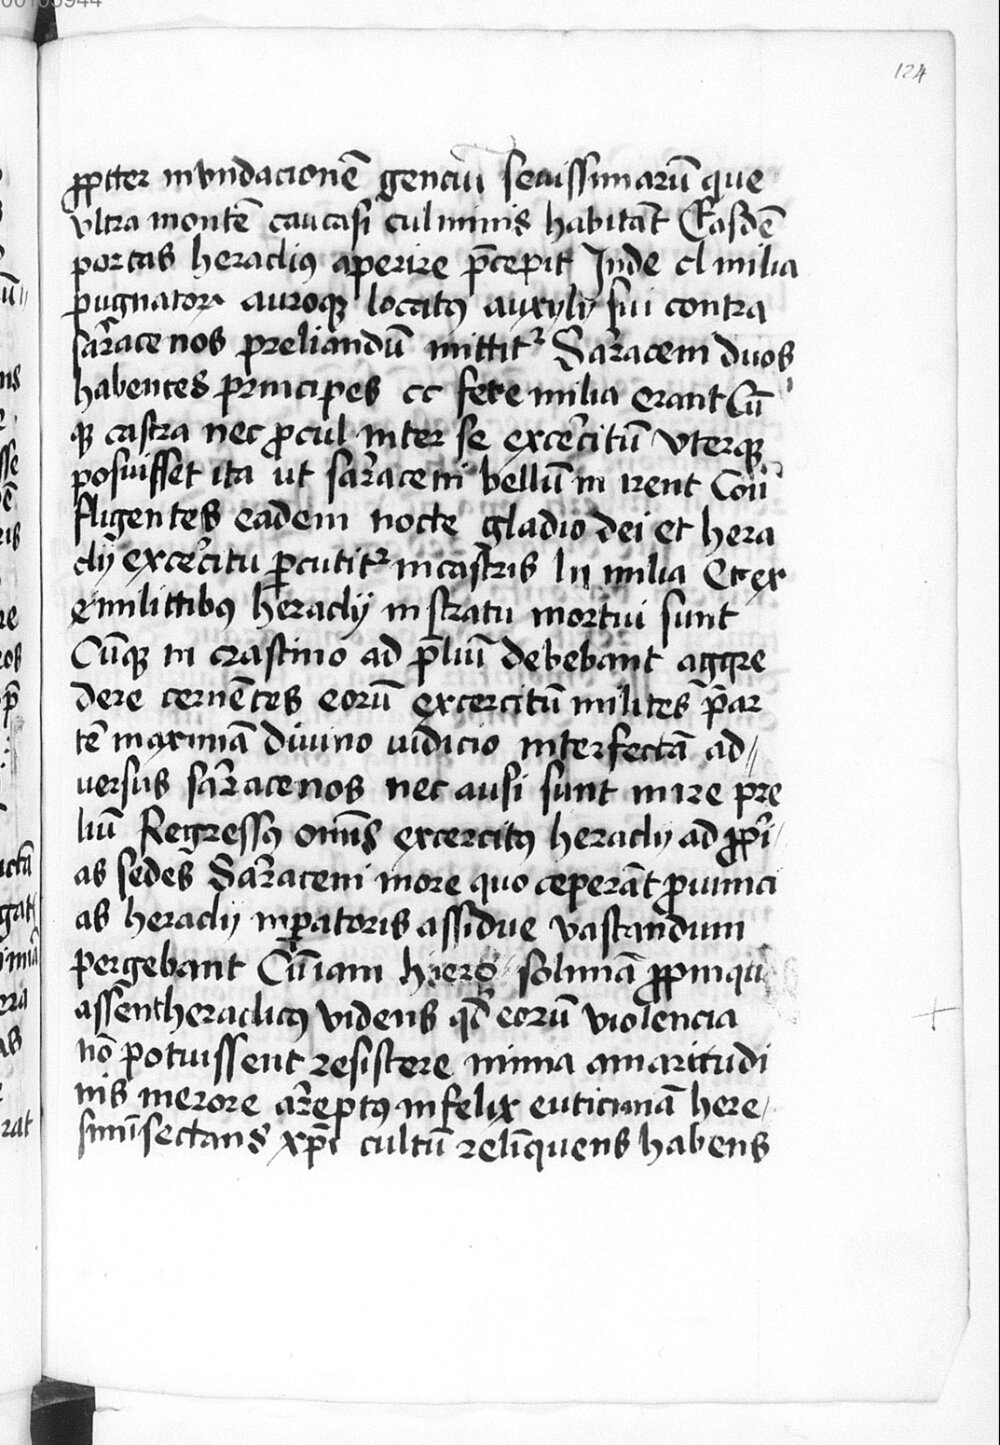 124
ꝓpter inundacionē genciū seuissimarū que
vltra montē caucasi culminis habitāt Easdē
portas heraclius aperire p̄cepit Inde cl milia
pugnator auroque locatus auxylij sui contra
sarracenos preliandū mittitur Sarraceni duos
habentes principes cc fere milia erant Cū
qꝫ castra nec procul inter se excercitū vterqꝫ
posuisset ita ut sarraceni bellū inirent Con
fligentes eadem nocte gladio dei et hera
clij excercitu percutitur in castris lii milia Et ex
emilittibus heraclij in stratu mortui sunt
Cūqꝫ in crastino ad p̄liū debebant aggre
dere cernētes eorū excercitū milites par
tē maximā diuino iudicio interfectā ad
versus sarracenos nec ausi sunt inire pre
liū Regressus omīs excercitus heraclij ad ꝓpri
as sedes Sarraceni more quo ceperāt prouinci
as heraclij inperatoris assidue vastandum
pergebant Cū iam hiero solimā ꝓpinqu
assent heraclius videns qd eorū violencia
nō potuissent resistere nimia amaritudi
nis merore arreptus infelix euticiniā here
sim sectans xpī cultū relinquens habens